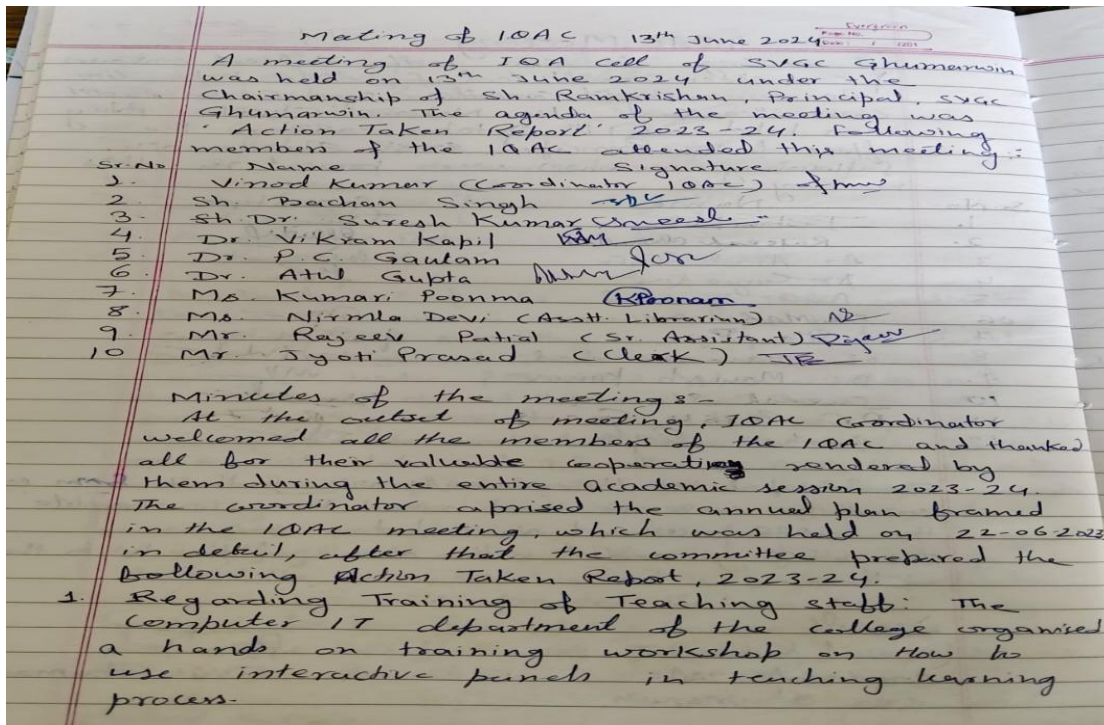 Evergreen
Page No.
Date: / /201
Meting of IQAC 13th June 2024
A meeting of IQA Cell of SVGC Ghumarwin
was held on 13th June 2024 under the
Chairmanship of Sh. Ramkrishan, Principal, SVGC
Ghumarwin. The agenda of the meeting was
'Action Taken Report' 2023-24. Following
members of the IQAC attended this meeting:
Sr. No Name Signature
1. Vinod Kumar (Coordinator IQAC)
2. Sh. Bachan Singh
3. Sh Dr. Suresh Kumar Suresh
4. Dr. Vikram Kapil
5. Dr. P.C. Gautam
6. Dr. Atul Gupta
7. Ms. Kumari Poonma KPoonam
8. Ms. Nirmla Devi (Asstt. Librarian)
9. Mr. Rajeev Patial (Sr. Assistant)
10 Mr. Jyoti Prasad (Clerk)
Minutes of the meeting:-
At the outset of meeting, IQAC Coordinator
welcomed all the members of the IQAC and thanked
all for their valuable cooperating rendered by
them during the entire academic session 2023-24.
The coordinator aprised the annual plan framed
in the IQAC meeting, which was held on 22-06-2023
in detail, after that the committee prepared the
following Action Taken Report, 2023-24.
1. Regarding Training of Teaching staff: The
Computer IT department of the college organised
a hands on training workshop on How to
use interactive panels in teaching learning
process.